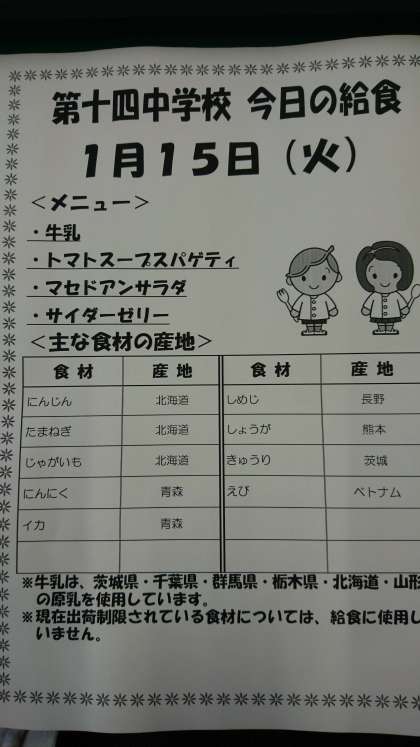 第十四中学校 今日の給食
1月15日（火）
＜メニュー＞
・牛乳
・トマトスープスパゲティ
・マセドアンサラダ
・サイダーゼリー
＜主な食材の産地＞
食材 産地 食材 産地
にんじん 北海道 しめじ 長野
たまねぎ 北海道 しょうが 熊本
じゃがいも 北海道 きゅうり 茨城
にんにく 青森 えび ベトナム
イカ 青森
※牛乳は、茨城県・千葉県・群馬県・栃木県・北海道・山形
の原乳を使用しています。
※現在出荷制限されている食材については、給食に使用し
いません。